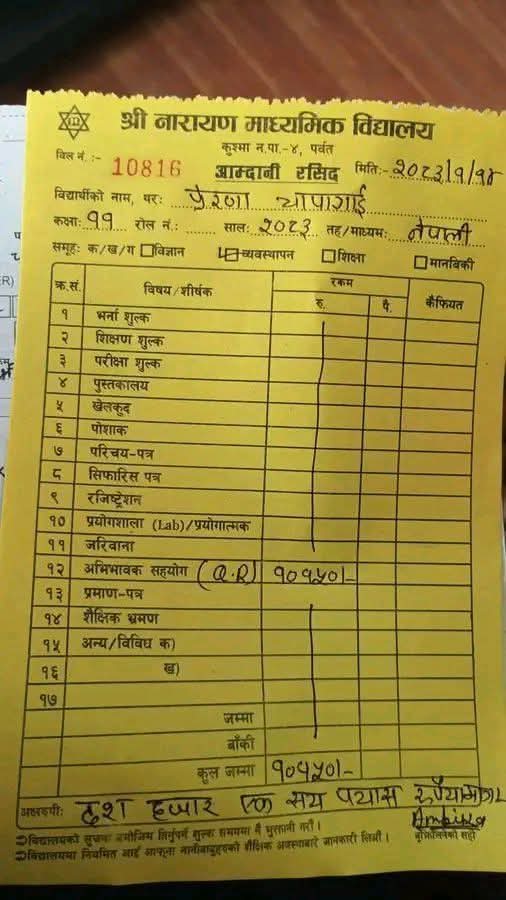 श्री नारायण माध्यमिक विद्यालय
कुश्मा न.पा.-४, पर्वत
विल नं. :- 10816 आम्दानी रसिद मिति:- २०८३/१/१४
विद्यार्थीको नाम, थर: प्रेरणा चापागाई
कक्षा: ११ रोल नं.: साल: २०८३ तह/माध्यम: नेपाली
समूह: क/ख/ग विज्ञान व्यवस्थापन शिक्षा मानविकी
क्र.सं. विषय/शीर्षक रकम कैफियत
रु. पै.
१ भर्ना शुल्क
२ शिक्षण शुल्क
३ परीक्षा शुल्क
४ पुस्तकालय
५ खेलकुद
६ पोशाक
७ परिचय-पत्र
८ सिफारिस पत्र
९ रजिष्ट्रेशन
१० प्रयोगशाला (Lab)/प्रयोगात्मक
११ जरिवाना
१२ अभिभावक सहयोग (Q.R) १०१५०।-
१३ प्रमाण-पत्र
१४ शैक्षिक भ्रमण
१५ अन्य/विविध क)
१६ ख)
१७
जम्मा
बाँकी
कुल जम्मा १०१५०।-
अक्षरुपी: दश हजार एक सय पचास
Ambika
विद्यालयको सूचना बमोजिम तिर्नुपर्ने शुल्क समयमा नै भुक्तानी गरौं।
विद्यालयमा नियमित आई आफ्ना नानीबाबुहरुको शैक्षिक अवस्थाबारे जानकारी लिऔं।
बुझिलिनेको सही